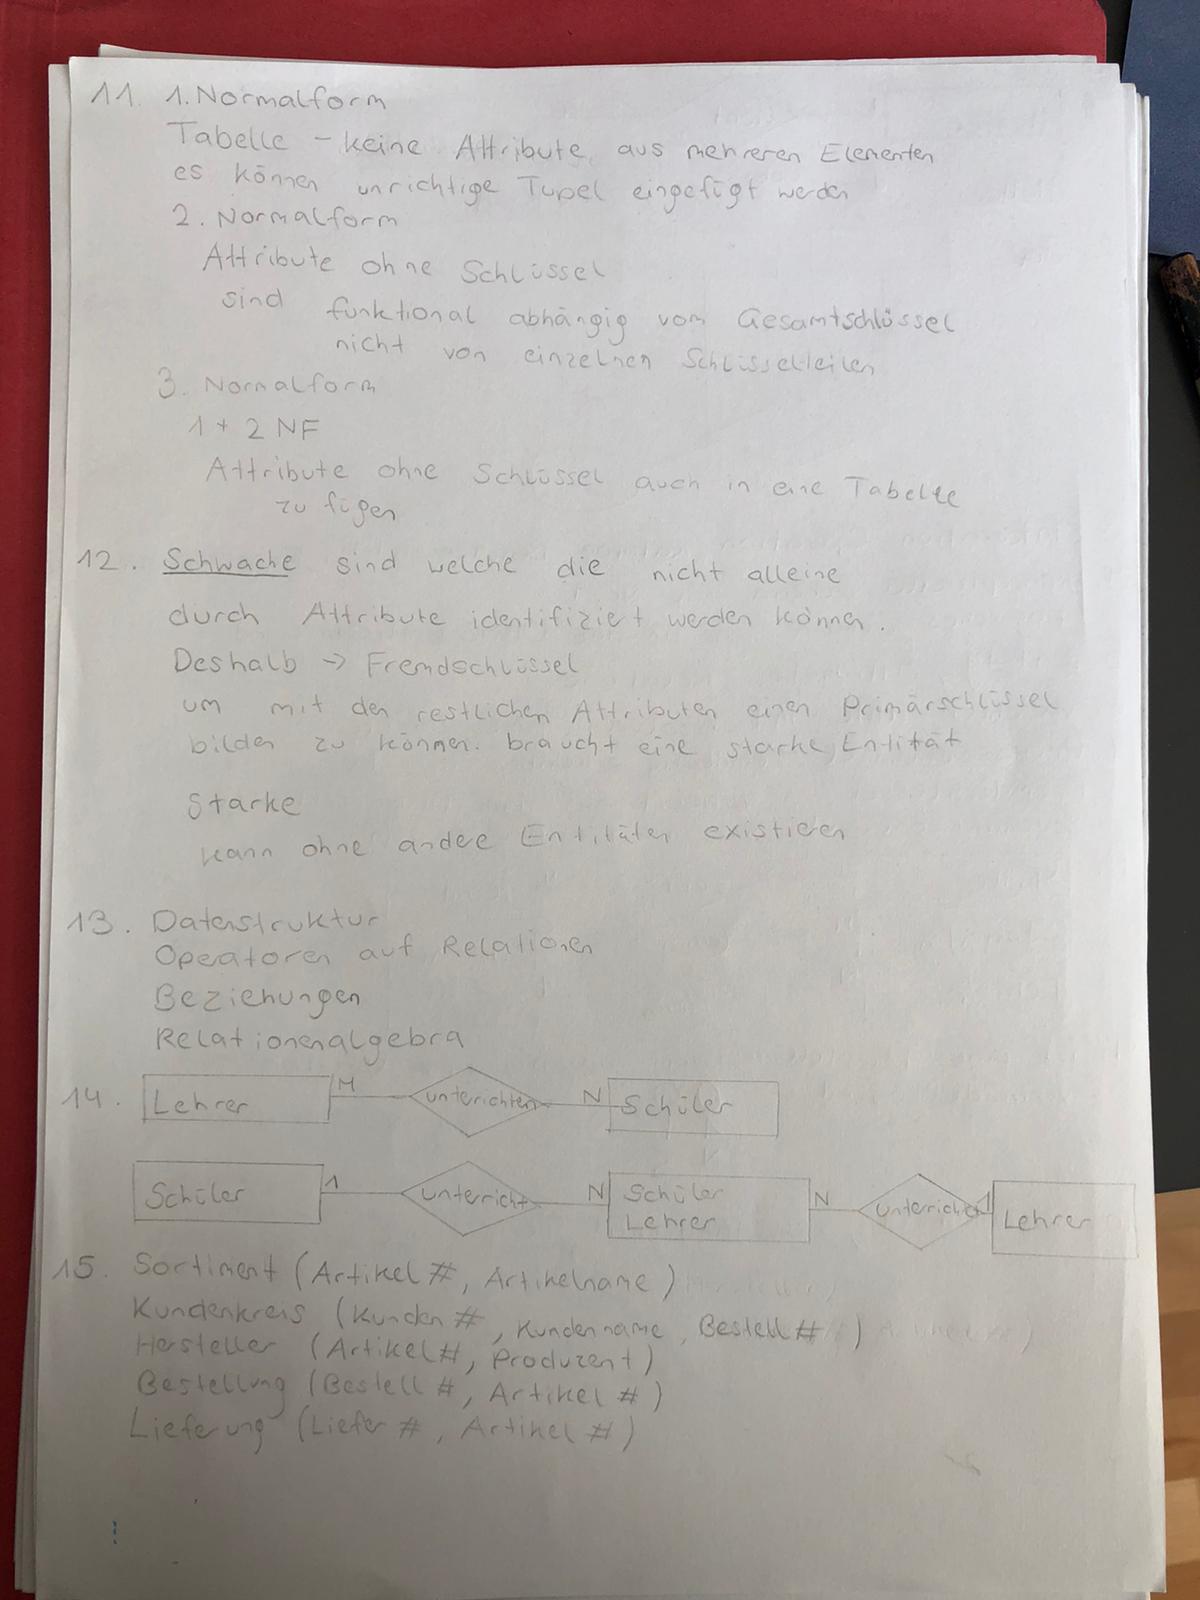 11. 1. Normalform
Tabelle - keine Attribute aus mehreren Elementen
es können unrichtige Tupel eingefügt werden
2. Normalform
Attribute ohne Schlüssel
sind funktional abhängig vom Gesamtschlüssel
nicht von einzelnen Schlüsselteilen
3. Normalform
1 + 2 NF
Attribute ohne Schlüssel auch in eine Tabelle
zu fügen
12. Schwache sind welche die nicht alleine
durch Attribute identifiziert werden können.
Deshalb → Fremdschlüssel
um mit den restlichen Attributen einen Primärschlüssel
bilden zu können. braucht eine starke Entität
Starke
kann ohne andee Entitäten existieren
13. Datenstruktur
Operatoren auf Relationen
Beziehungen
Relationenalgebra
14. Lehrer M unterichten N Schüler
Schüler 1 unterricht N Schüler Lehrer N unterricht 1 Lehrer
15. Sortiment (Artikel #, Artikelname)
Kundenkreis (Kunden #, Kundenname, Bestell #)
Hersteller (Artikel #, Produzent)
Bestellung (Bestell #, Artikel #)
Lieferung (Liefer #, Artikel #)